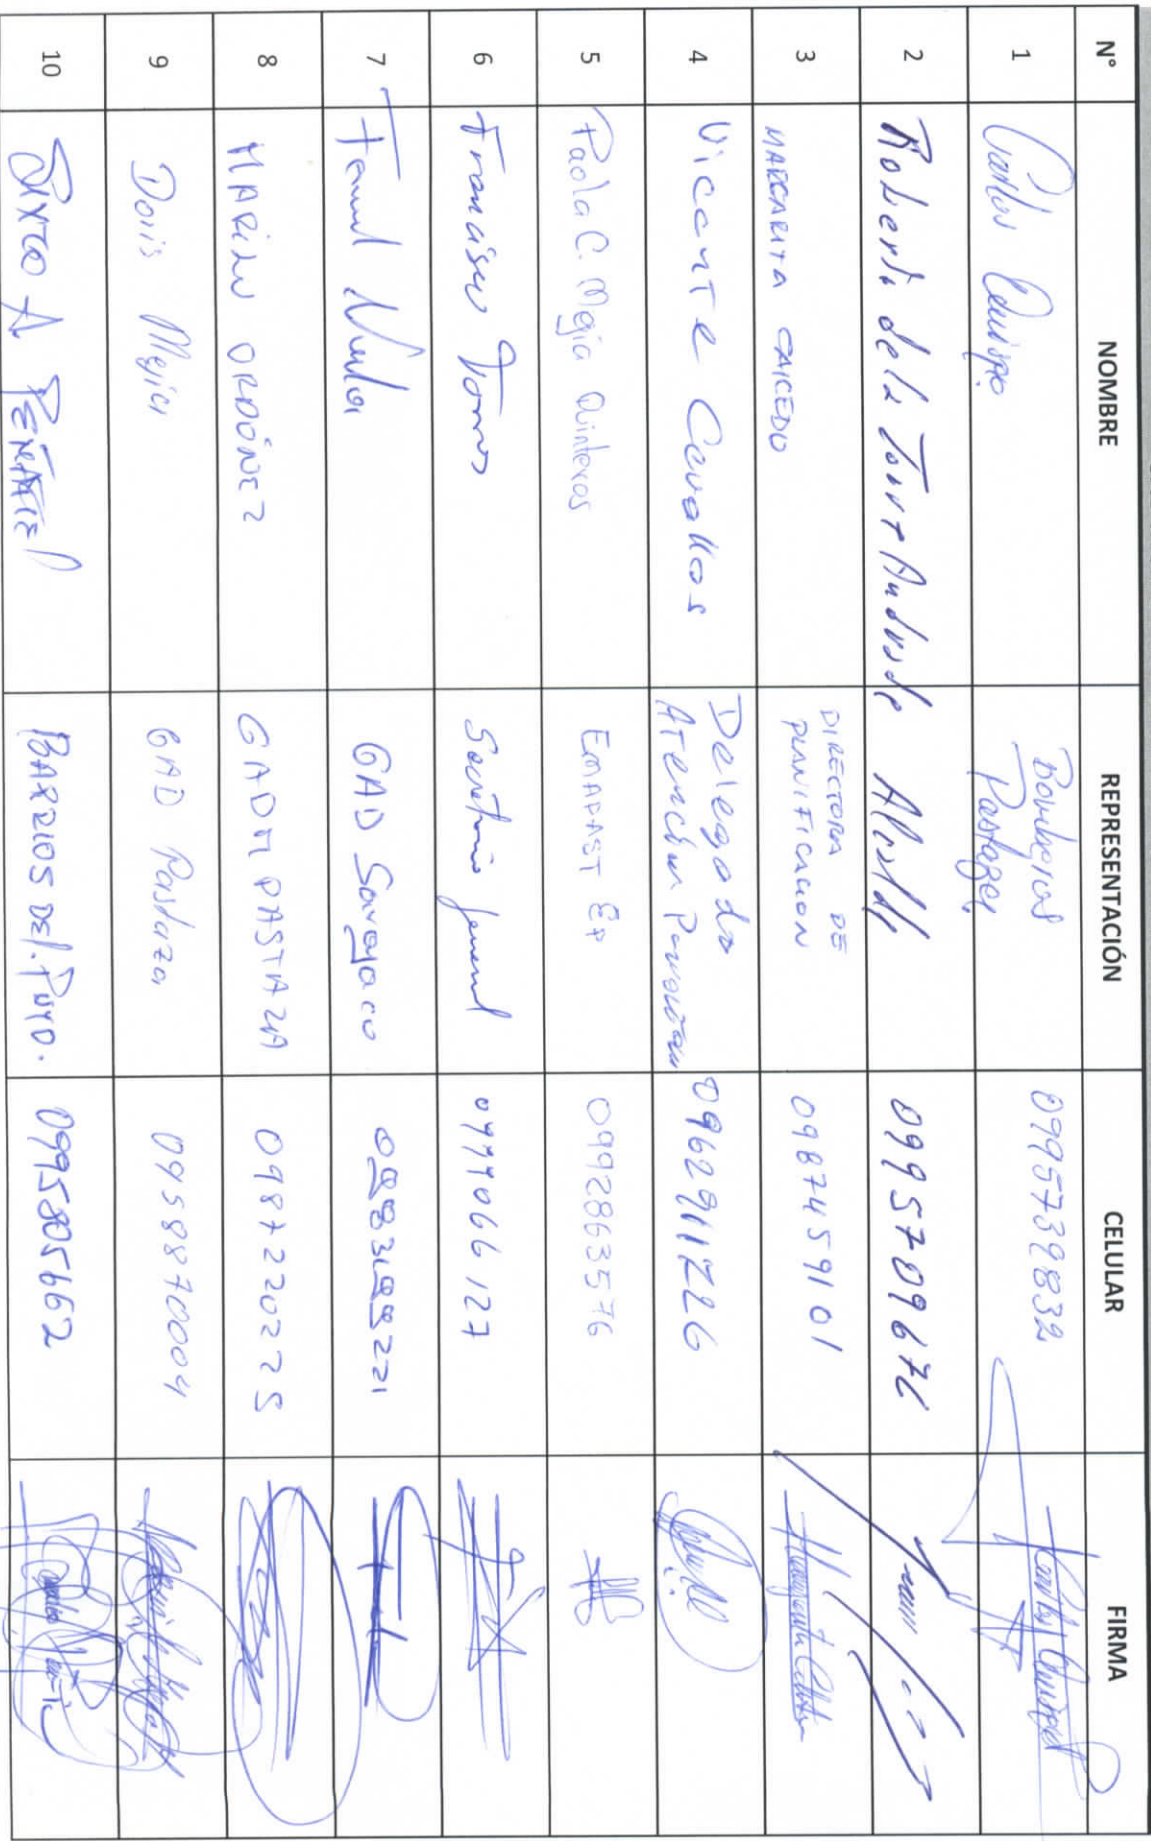 N° NOMBRE REPRESENTACIÓN CELULAR FIRMA
1 Carlos Quispe Bomberos Pastaza 0995739832
2 Roberto de la Torre Andrade Alcalde 0995709676
3 MARGARITA CAICEDO DIRECTORA DE PLANIFICACION 0987459101
4 Vicente Cevallos Delegado Atención 0962911226
5 Paola C. Mejia Quinteros EMAPAST EP 0992863576
6 Francisco Torres Secretario General 0999066127
7 GAD Sarayaco 0983198221
8 MARILU ORDÓÑEZ GADM PASTAZA 0987220225
9 Doris Mejia GAD Pastaza 0958870004
10 SIXTO A PEÑAFIEL BARRIOS DEL PUYO. 0995805662